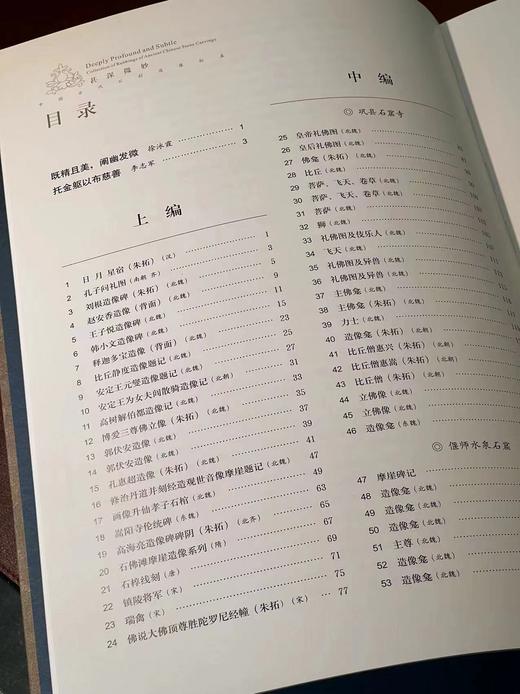 Deeply Profound and Subtle
Collection of Rubbings of Ancient Chinese Stone Carvings
甚深微妙
目录
既精且美，阐幽发微 徐泳霞 1
托金躯以布慈善 李志军 3
上编
1 日 月 星宿（朱拓）（汉） 1
2 孔子问礼图（南朝 齐） 3
3 刘根造像碑（朱拓）（北魏） 5
4 赵安香造像（背面）（北魏） 9
5 王子悦造像碑（北魏） 11
6 韩小文造像碑（北魏） 15
7 释迦多宝造像（背面）（北魏） 23
8 比丘静度造像题记（北魏） 25
9 安定王元燮造像题记（北魏） 27
10 安定王为女夫闾散骑造像记（北朝） 31
11 高树解伯都造像记（北魏） 33
12 博爱三尊佛立像（朱拓）（北魏） 35
13 郭伏安造像（北魏） 37
14 郭伏安造像（北魏） 39
15 孔惠超造像（朱拓）（北魏） 41
16 修治丹道并刻经造观世音像摩崖题记（北魏） 47
17 画像升仙孝子石棺（北魏） 49
18 嵩阳寺伦统碑（东魏） 63
19 高海亮造像碑碑阴（朱拓）（北齐） 65
20 石佛滩摩崖造像系列（隋） 67
21 石椁线刻（唐） 69
22 镇陵将军（宋） 71
23 瑞禽（宋） 75
24 佛说大佛顶尊胜陀罗尼经幢（朱拓）（宋） 77
中编
◎ 巩县石窟寺
25 皇帝礼佛图（北魏）
26 皇后礼佛图（北魏）
27 佛龛（朱拓）（北魏）
28 比丘（北魏）
29 菩萨、飞天、卷草（北魏）
30 菩萨、飞天、卷草（北魏）
31 菩萨（北魏）
32 狮（北魏）
33 礼佛图及伎乐人（北魏）
34 飞天（北魏）
35 礼佛图及异兽（北魏）
36 礼佛图及异兽（北魏）
37 主佛龛（北魏）
38 主佛龛（朱拓）（北魏）
39 力士（北魏）
40 造像龛（朱拓）（北朝）
41 比丘僧惠兴（朱拓）（北朝）
42 比丘僧惠嵩（朱拓）（北朝）
43 比丘僧（朱拓）（北朝）
44 立佛像（北魏）
45 立佛像（北魏）
46 造像龛（东魏）
◎ 偃师水泉石窟
47 摩崖碑记
48 造像龛（北魏）
49 造像龛（北魏）
50 造像龛（北魏）
51 主尊（北魏）
52 造像龛（北魏）
53 造像龛（北魏）